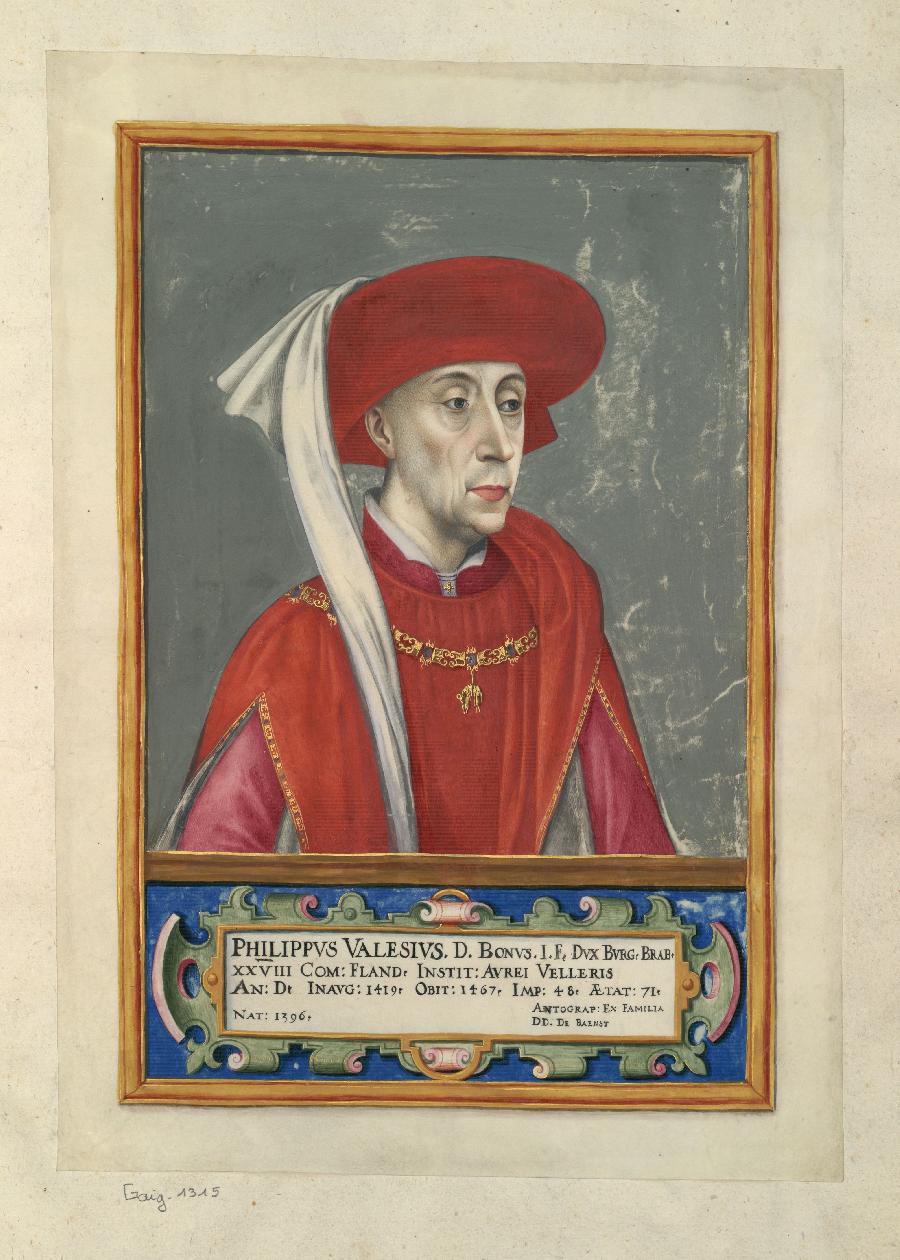 PHILIPPVS VALESIVS. D. BONVS. I. F, DVX BVRG: BRAB:
XXVIII COM: FLAND: INSTIT: AVREI VELLERIS
AN: D: INAVG: 1419, OBIT: 1467, IMP: 48: ÆTAT: 71:
NAT: 1396,
ANTOGRAP: EX FAMILIA
DD. DE BAENST
Gaig. 1315